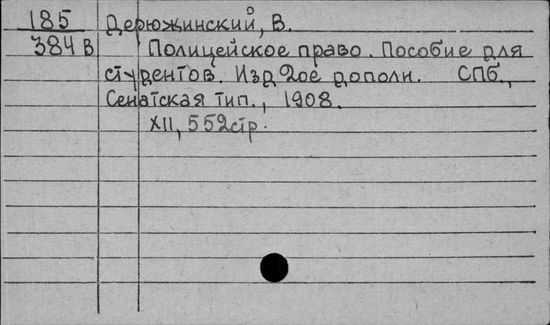 185 Дерюжинский, В.
384 В Полицейское право. Пособие для
студентов. Изд 2ое дополн. СПб.,
Сенатская тип., 1908.
XII, 552стр.